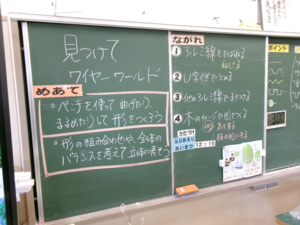 見つけて
ワイヤーワールド
めあて
・ペンチを使って曲げたり、
まるめたりして形をつくろう
・形の組み合わせや、全体の
バランスを考えて立体に表そう
ながれ
① アルミ線をたばねる
ねじる
② U字くぎでとめる
③ 他のアルミ線でまきつける
④ 木の
かたづけ
ふりかえり
あいさつ
12:15
ポイント